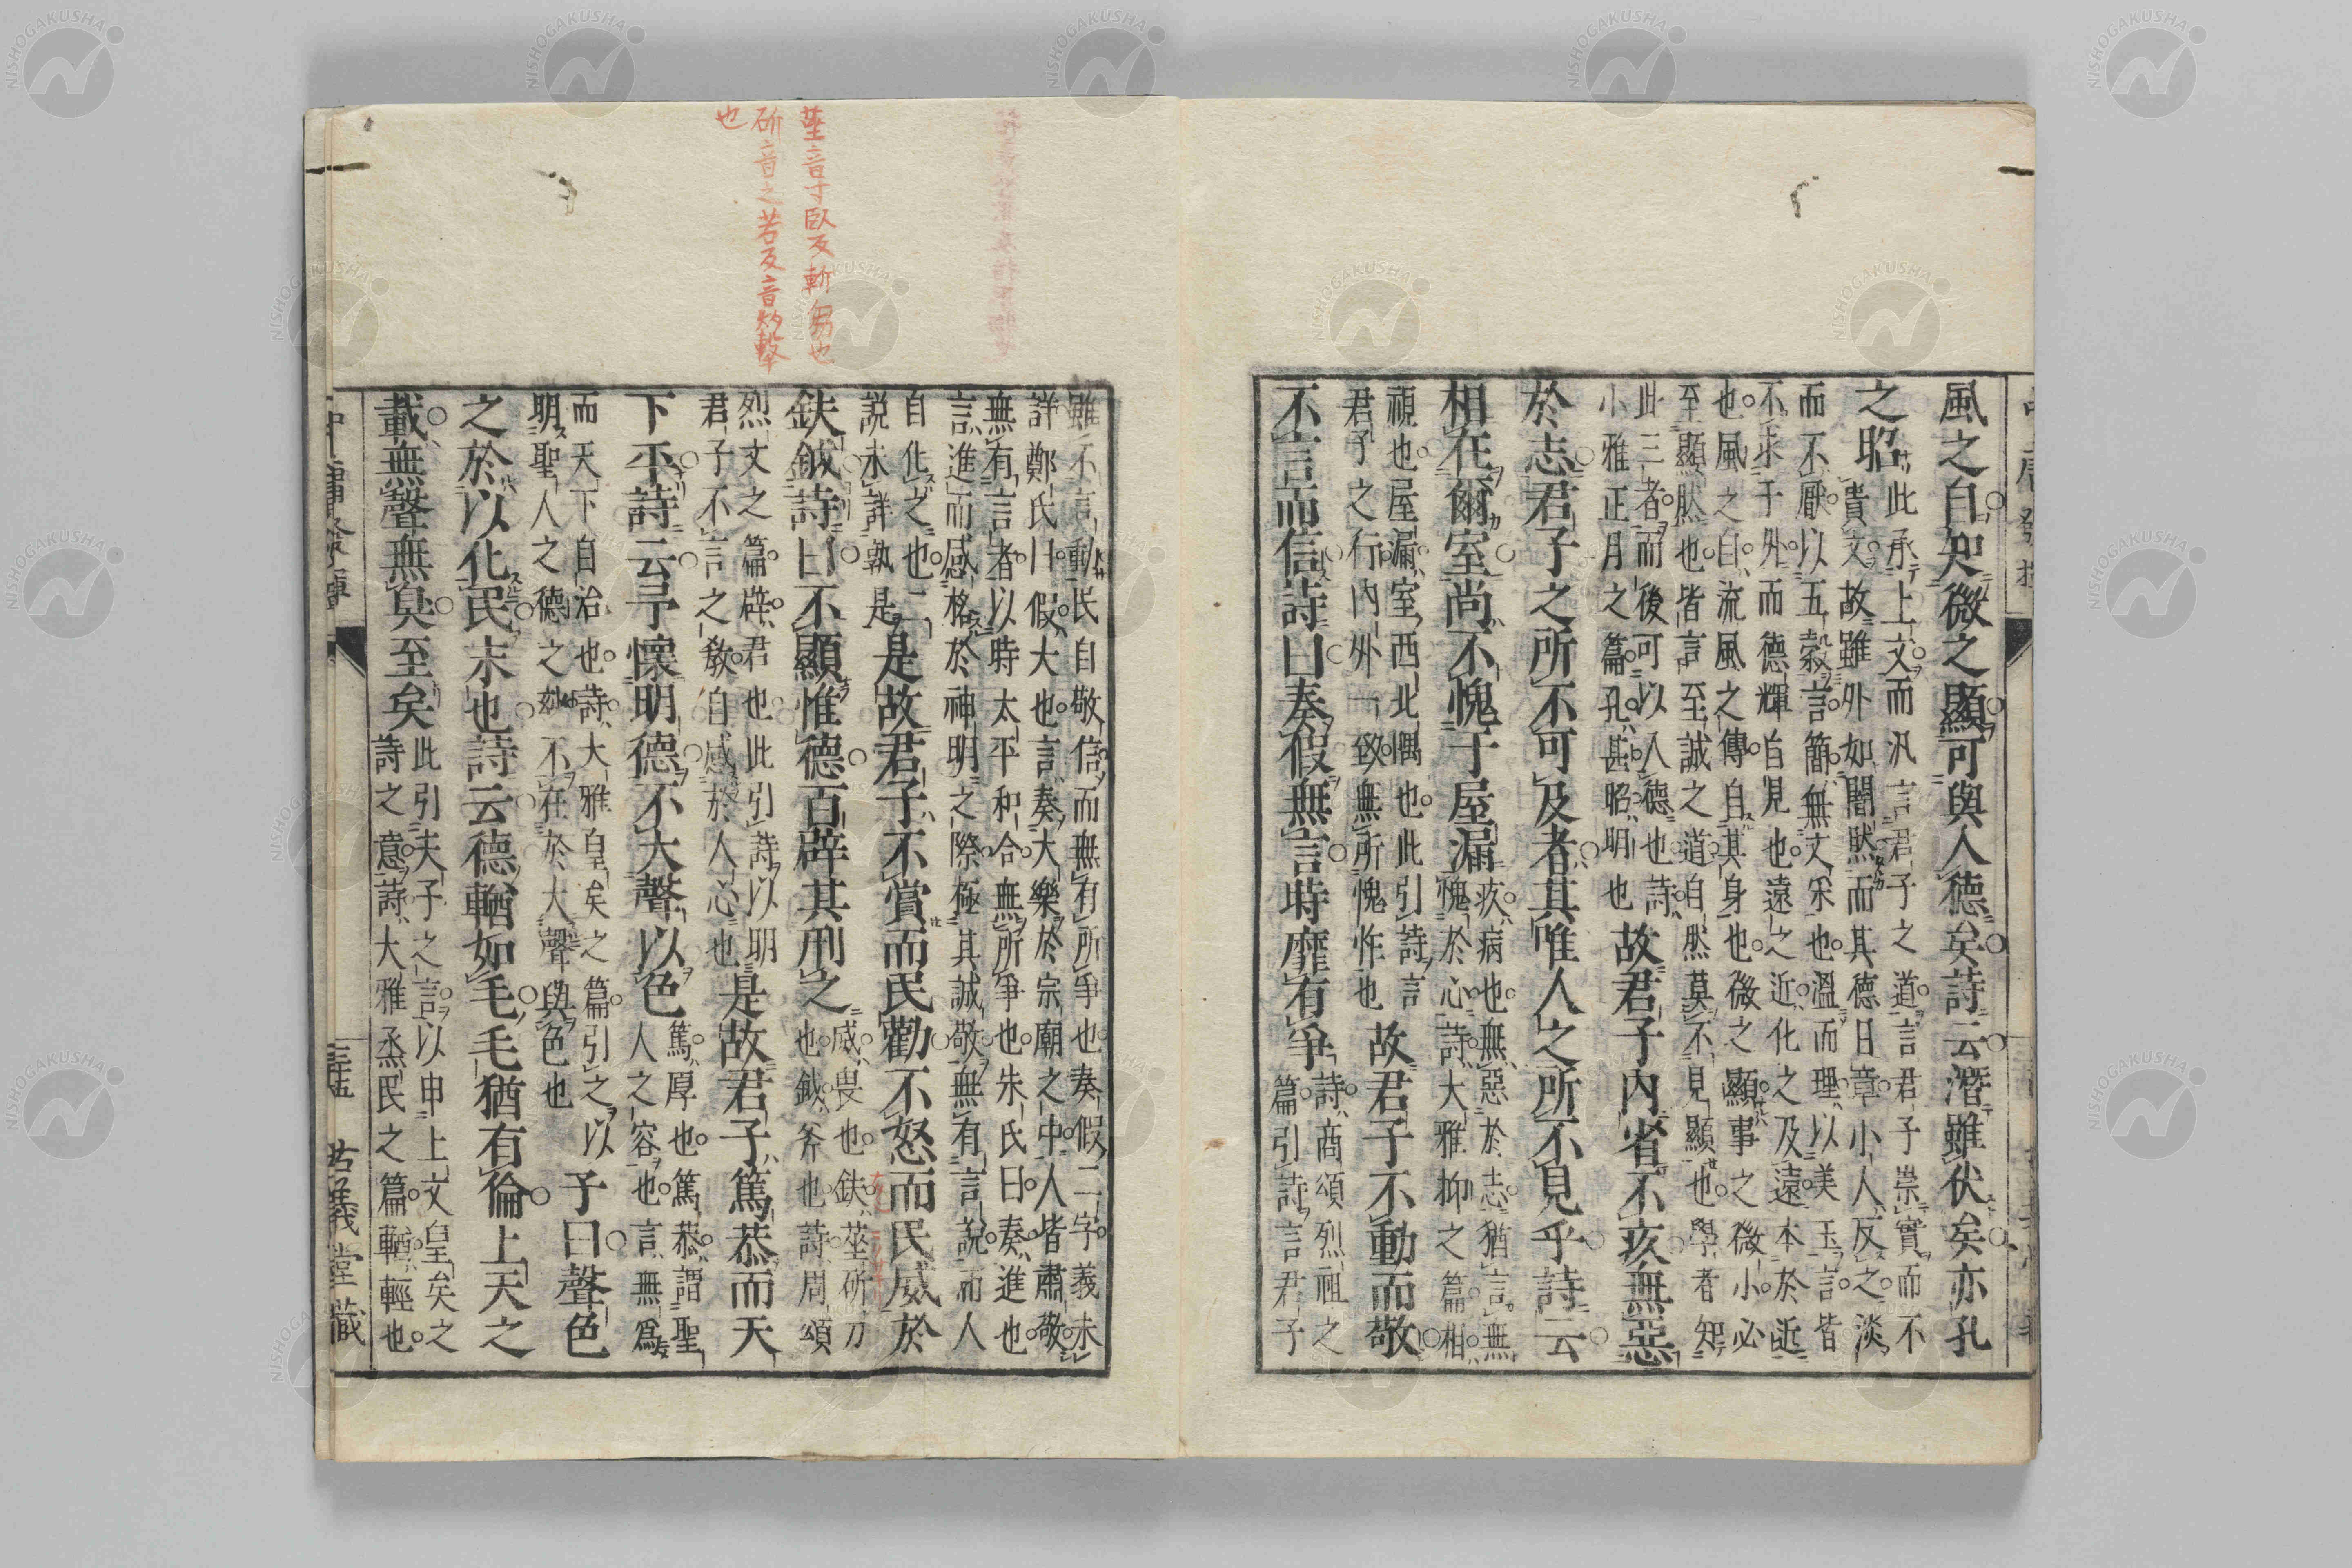 風之自知微之顯可與人德矣詩云潛雖伏矣亦孔
之昭
此承上文而汎言君子之道言君子崇實而不
貴文故雖外如闇然而其德日章小人反之淡
而不厭以五穀言簡無文采也溫而理以美玉言皆
不求于外而德輝自見也遠之近化之及遠本於近
也風之自流風之傳自其身也微之顯事之微小必
至顯然也皆言至誠之道自然莫不見顯也學者知
此三者而後可以入德也詩
小雅正月之篇孔甚昭明也
故君子內省不疚無惡
於志君子之所不可及者其唯人之所不見乎詩云
相在爾室尚不愧于屋漏
疚病也無惡於志猶言無
愧於心詩大雅抑之篇相
視也屋漏室西北隅也此引詩言
君子之行內外一致無所愧怍也
故君子不動而敬
不言而信詩曰奏假無言時靡有爭
詩商頌烈祖之
篇引詩言君子
雖不言動民自敬信而無有所爭也奏假二字義未
詳鄭氏曰假大也言奏大樂於宗廟之中人皆肅敬
無有言者以時太平和合無所爭也朱氏曰奏進也
言進而感格於神明之際極其誠敬無有言說而人
自化之也二
説未詳孰是
是故君子不賞而民勸不怒而民威於
鈇鉞詩曰不顯惟德百辟其刑之
威畏也鈇莝斫刀
也鉞斧也詩周頌
烈文之篇辟君也此引詩以明
君子不言之教自感於人心也
是故君子篤恭而天
下平詩云予懷明德不大聲以色
篤厚也篤恭謂聖
人之容也言無為
而天下自治也詩大雅皇矣之篇引之以
明聖人之德之妙不在於大聲與色也
子曰聲色
之於以化民末也詩云德輶如毛毛猶有倫上天之
載無聲無臭至矣
此引夫子之言以申上文皇矣之
詩之意詩大雅烝民之篇輶輕也
古義堂藏
莝音寸臥反斬芻也
斫音之若反音灼擊
也